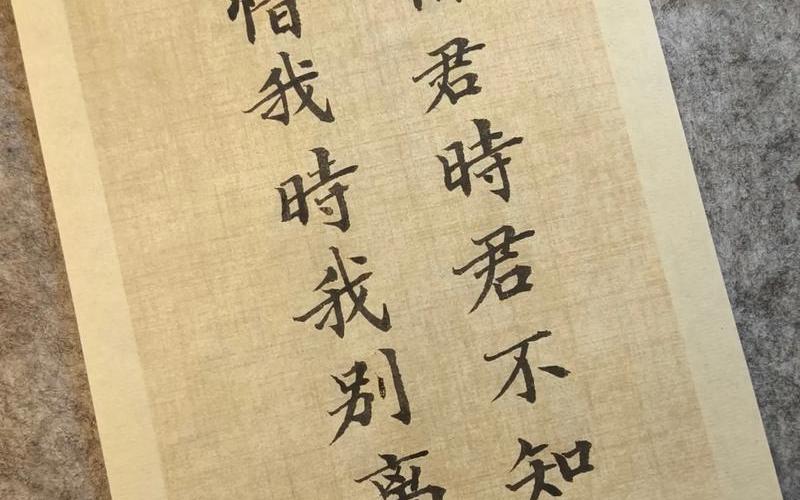 君時君不知
惜我時我別离